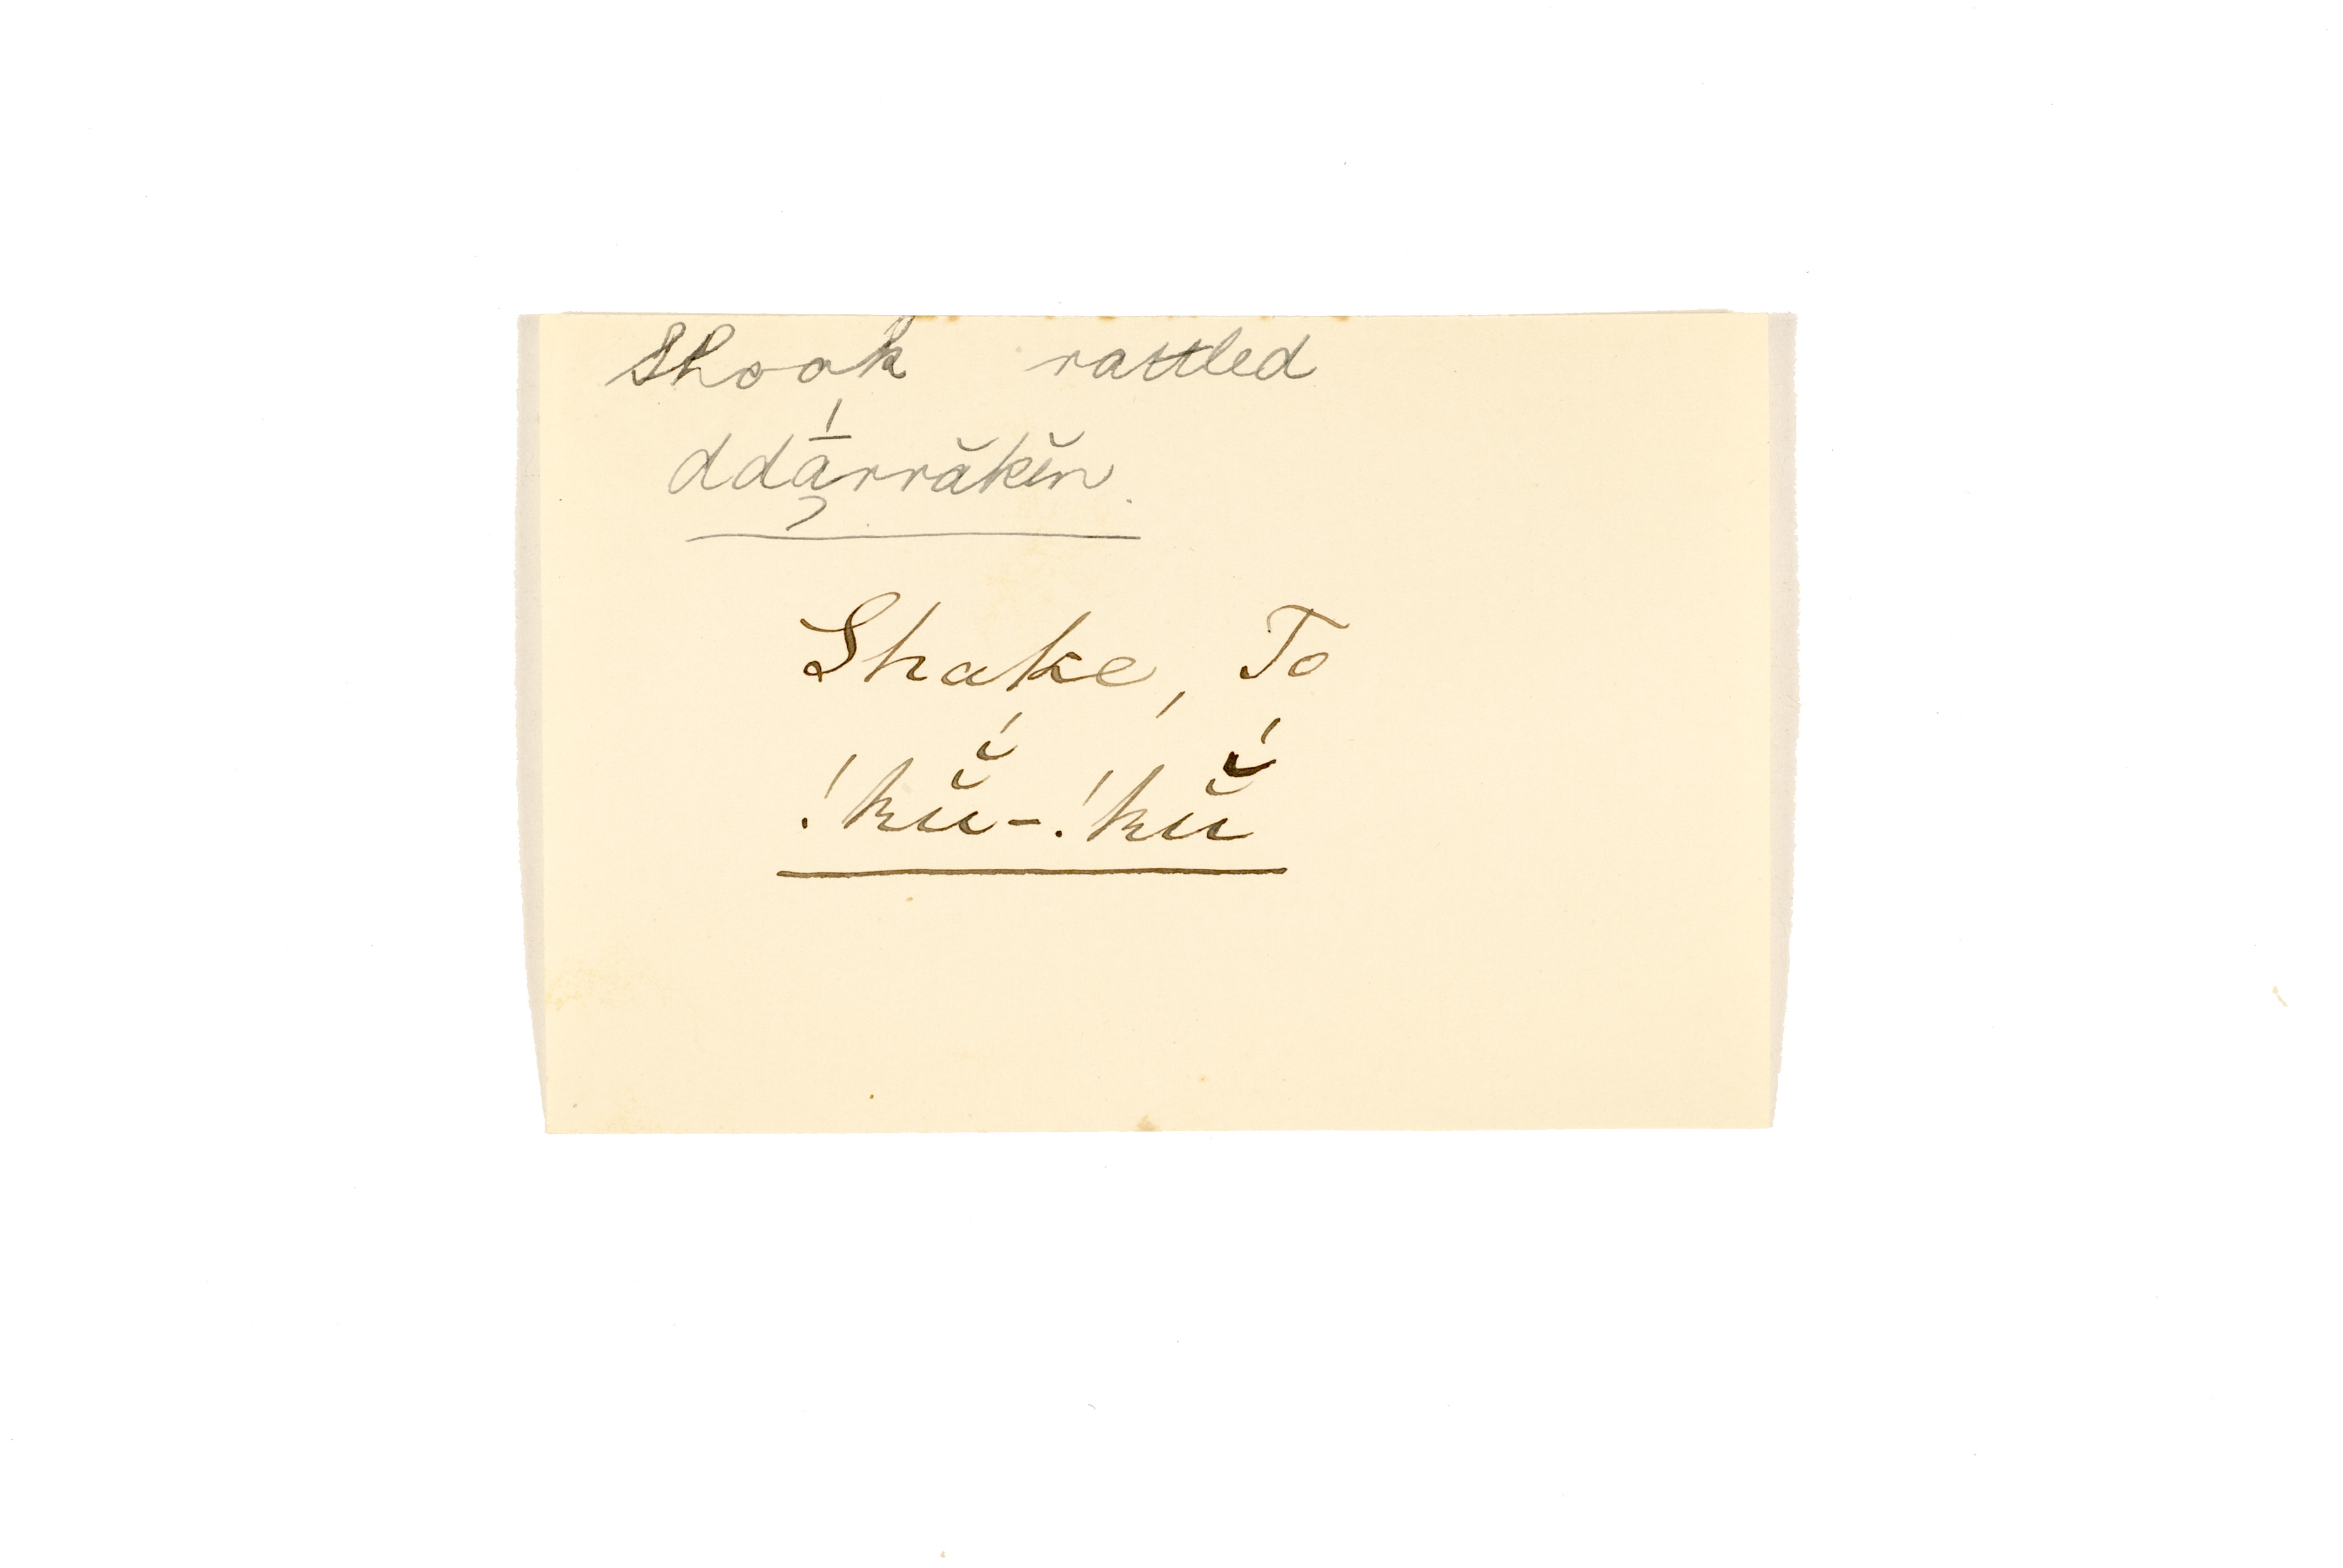 Shook rattled
ddā́rrăkĕn.
Shake, To
!kŭ̆́-!kŭ̆́